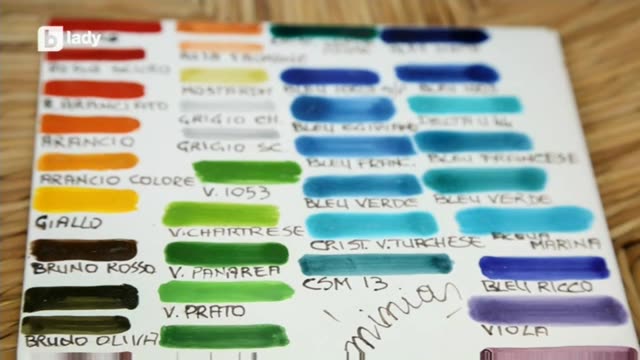 b lady
ROSSO SCURO
R. ARANCIATO
ARANCIO
ARANCIO COLORE
GIALLO
BRUNO ROSSO
BRUNO OLIVA
MOSTARDA
GRIGIO CH.
GRIGIO SC.
V. 1053
V. CHARTRESE
V. PANAREA
V. PRATO
BLEU EGIZIANO
BLEU FRANC.
BLEU VERDE
CRIST. V. TURCHESE
CSM 13
BLEU FRANCESE
BLEU VERDE
ACQUA MARINA
BLEU RICCO
VIOLA